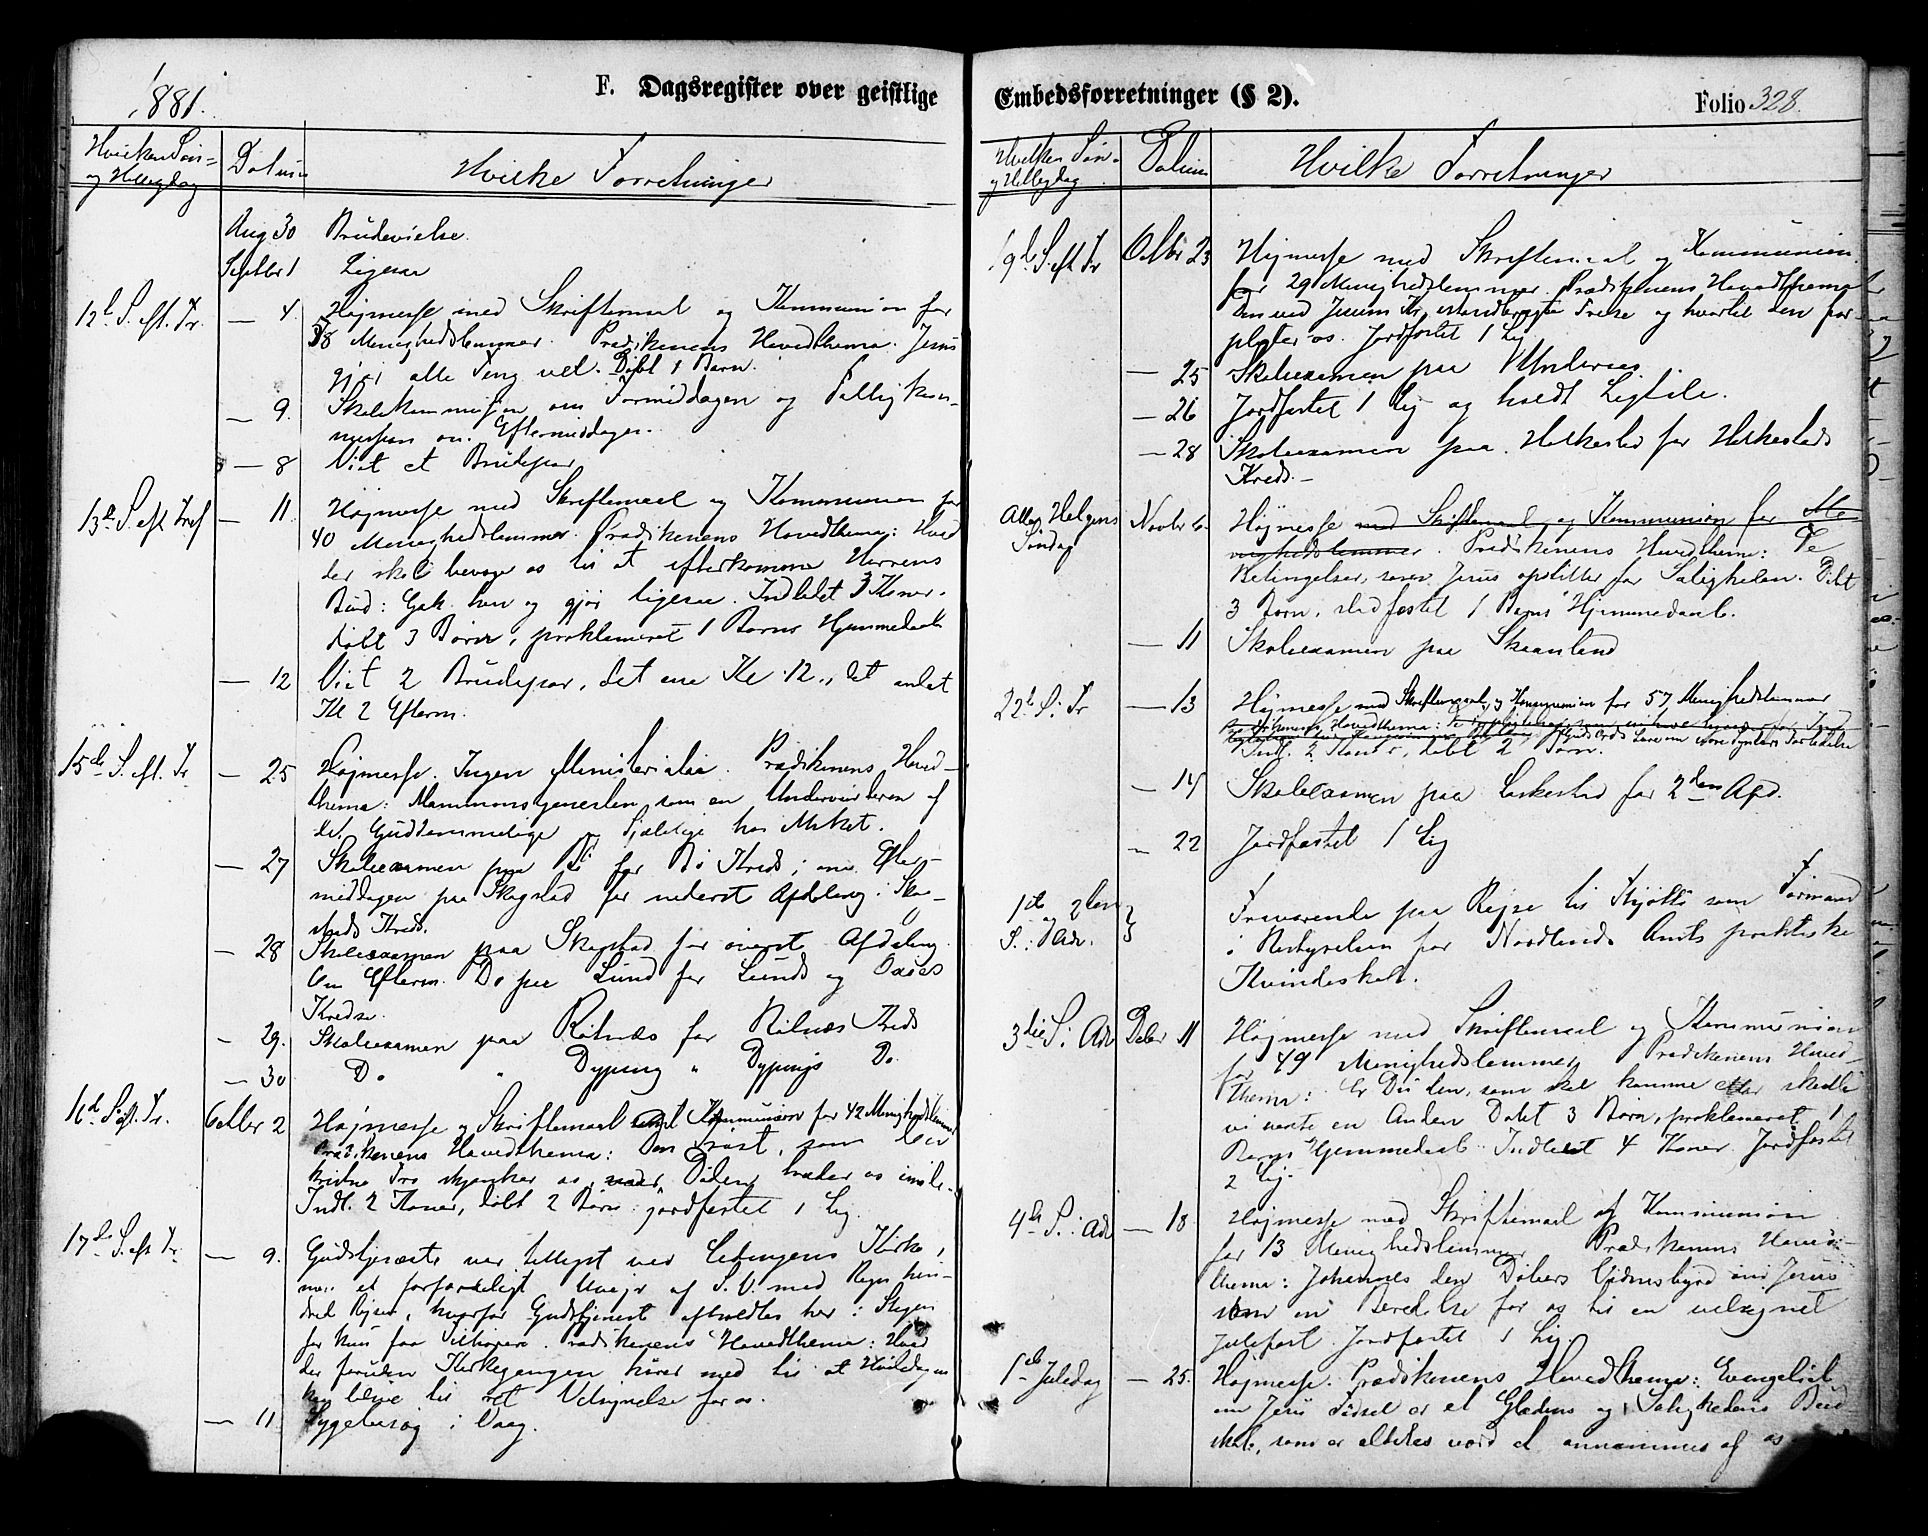 1881.
F. Dagsregister over geistlige
Hvilken Søn-
og Helligdag
Datum
Hvilke Forretninger
Aug 30 Brudevielse.
Septbr 1 Ligesaa
12te S. eft. Tr. — 4. Højmesse med Skriftemaal og Kommunion for
38 Menighedslemmer. Prædikenens Hovedthema: Jesus
gjør alle Ting vel. Døbt 1 Barn.
— 9. Skolekommission om Formiddagen og Fattigkom-
mission om Eftermiddagen.
— 8 Viet et Brudepar
13de S. eft Tref — 11. Højmesse med Skriftemaal og Kommunion for
40 Menighedslemmer. Prædikenens Hovedthema: Hvad
der skal bevæge os til at efterkomme Herrens
Bud: Gak hen og gjør ligesaa. Indledet 3 Koner.
døbt 3 Børn, proklameret 1 Barns Hjemmedaab
— 12 Viet 2 Brudepar, det ene Kl. 12., det andet
Kl 2 Efterm.
15de S. eft. Tr — 25 Højmesse. Ingen Ministerialia. Prædikenens Hoved-
thema: Mammonstjenesten, som en
det Guddommelige hos Mnsket.
— 27 Skoleexamen paa Bø for Bø Kreds; om Efter-
middagen paa Skagstad for nederst Afdeling i Skag-
stads Kreds.
— 28 Skoleexamen paa Skagstad for øverst Afdeling.
Om Efterm. Do paa Lund for Lunds og
Kredse.
— 29. Skoleexamen paa Røtnæs for Røtnæs Kreds
— 30 Do " Dypping " Dyppings Do
16de S. eft. Tr. Octbr 2 Højmesse og Skriftemaal samt Kommunion for 42 Menighedslemmer
Prædikenens Hovedthema: Den Trøst, som den
kristne Tro skjænker os, naar Døden træder os imøde.
Indl. 2 Koner, døbt 2 Børn, jordfæstet 1 Lig.
17de S. eft Tr. — 9. Gudstjeneste var tillyst ved Ledingens Kirke,
men et forfærdeligt Uvejr af S.V. med Regn hin-
dred Rejsen, hvorfor Gudstjenest afholdtes her i Stegen
for kun faa Tilhørere. Prædikenens Hovedthema: Hvad
der foruden Kirkegangen hører med til at Hviledagen
kan blive til ret Velsignelse for os.
— 11. Sygebesøg i Vaag.
Embedsforretninger (§ 2).
Folio 328.
Hvilken Søn-
og Helligdag
Datum
Hvilke Forretninger
19de S. eft Tr Octbr 23 Højmesse med Skriftemaal og Kommunion
for 29 Menighedslemmer. Prædikenens Hovedthema
Den ved Jesum Kr. istandbragte Frelse og hvortil den for-
pligter os. Jordfæstet 1 Lig
— 25 Skoleexamen paa
— 26 Jordfæstet 1 Lig og holdt Ligtale.
— 28 Skoleexamen paa Holkestad for Holkestads
Kreds.—
Alle Helgens
Søndag Novbr 6. Højmesse med Skriftemaal og Kommunion for Me-
nighedslemmer. Prædikenens Hovedthema: De
Betingelser, som Jesus opstiller for Saligheden. Døbt
3 Børn, stadfæstet 1 Barns Hjemmedaab.
— 11 Skoleexamen paa Skaanland
22de S. Tr — 13 Højmesse med Skriftemaal og Kommunion for 57 Menighedslemmer
Prædikenens Hovedthema:
Indl. 2 Koner, døbt 2 Børn.
— 14 Skoleexamen paa Laskestad for 2den Afd.
„ 22 Jordfæstet 1 Lig
1ste og 2den
S. i Adv. Fraværende paa Rejse til Kjøtta som Formand
i Bestyrelsen for Nordlands Amts praktiske
Kvindeskole.
3die S. i Adv Decbr 11 Højmesse med Skriftemaal og Kommunion
for 49 Menighedslemmer. Prædikenens Hoved-
thema: Er Du den, som skal komme eller skulle
vi vente en Anden Døbt 3 Børn, proklameret 1
Barns Hjemmedaab. Indledet 4 Koner. Jordfæstet
2 Lig.
4de S. i Adv — 18 Højmesse med Skriftemaal og Kommunion
for 13 Menighedslemmer Prædikenens Hoved-
thema: Johannes den Døbers Vidnesbyrd om Jesus
som en Beredelse for os til en velsignet
Julefest. Jordfæstet 1 Lig.
1ste Juledag — 25. Højmesse. Prædikenens Hovedthema: Evangeliet
om Jesu Fødsel er et Glædens og Salighedens Bud-
skab, som er aldeles værd at annammes af os